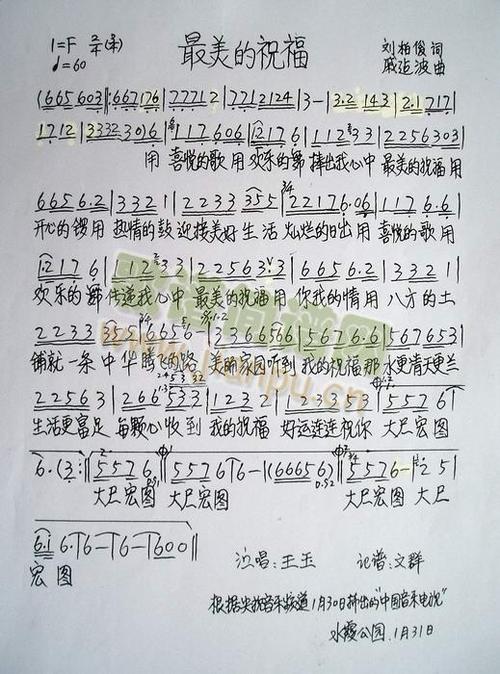 1=F 2/4
最美的祝福
刘柏俊 词
♩=60
戚运波 曲
(665 603|:667176|77712|7712124|3-|3.2 143|2.1717|
1712|3332 3016|117606|12176|11233|2256303|
用 喜悦的歌 用 欢乐的舞 捧出我心中 最美的祝福 用
6656.2|3321|2233 355|22176.06|1176.6|
开心的锣 用 热情的鼓 迎接美好 生活 灿烂的日出 用 喜悦的歌 用
12176|1233|22563.3|6656.2|3321|
欢乐的舞 传递我心中 最美的祝福 用 你我的情 用 八方的土
2233 355|6656|1236656|5676.6|567653|
铺就一条 中华腾飞的路 美丽家园听到 我的祝福 那 水更清天更兰
22563|266 533|1232|123353|5576|
生活更富足 每颗心收到 我的祝福 好运连连祝你 大尺宏图
6.(3:‖5576|5576|6-|(66656)|5576-|251
大尺宏图 大尺宏图 大尺宏图 大尺
6.1 6.|6-|6-|6-|600‖
宏 图
演唱:王玉 记谱:文群
根据央视音乐频道1月30日播出的"中国音乐电视"
水霞公园.1月31日